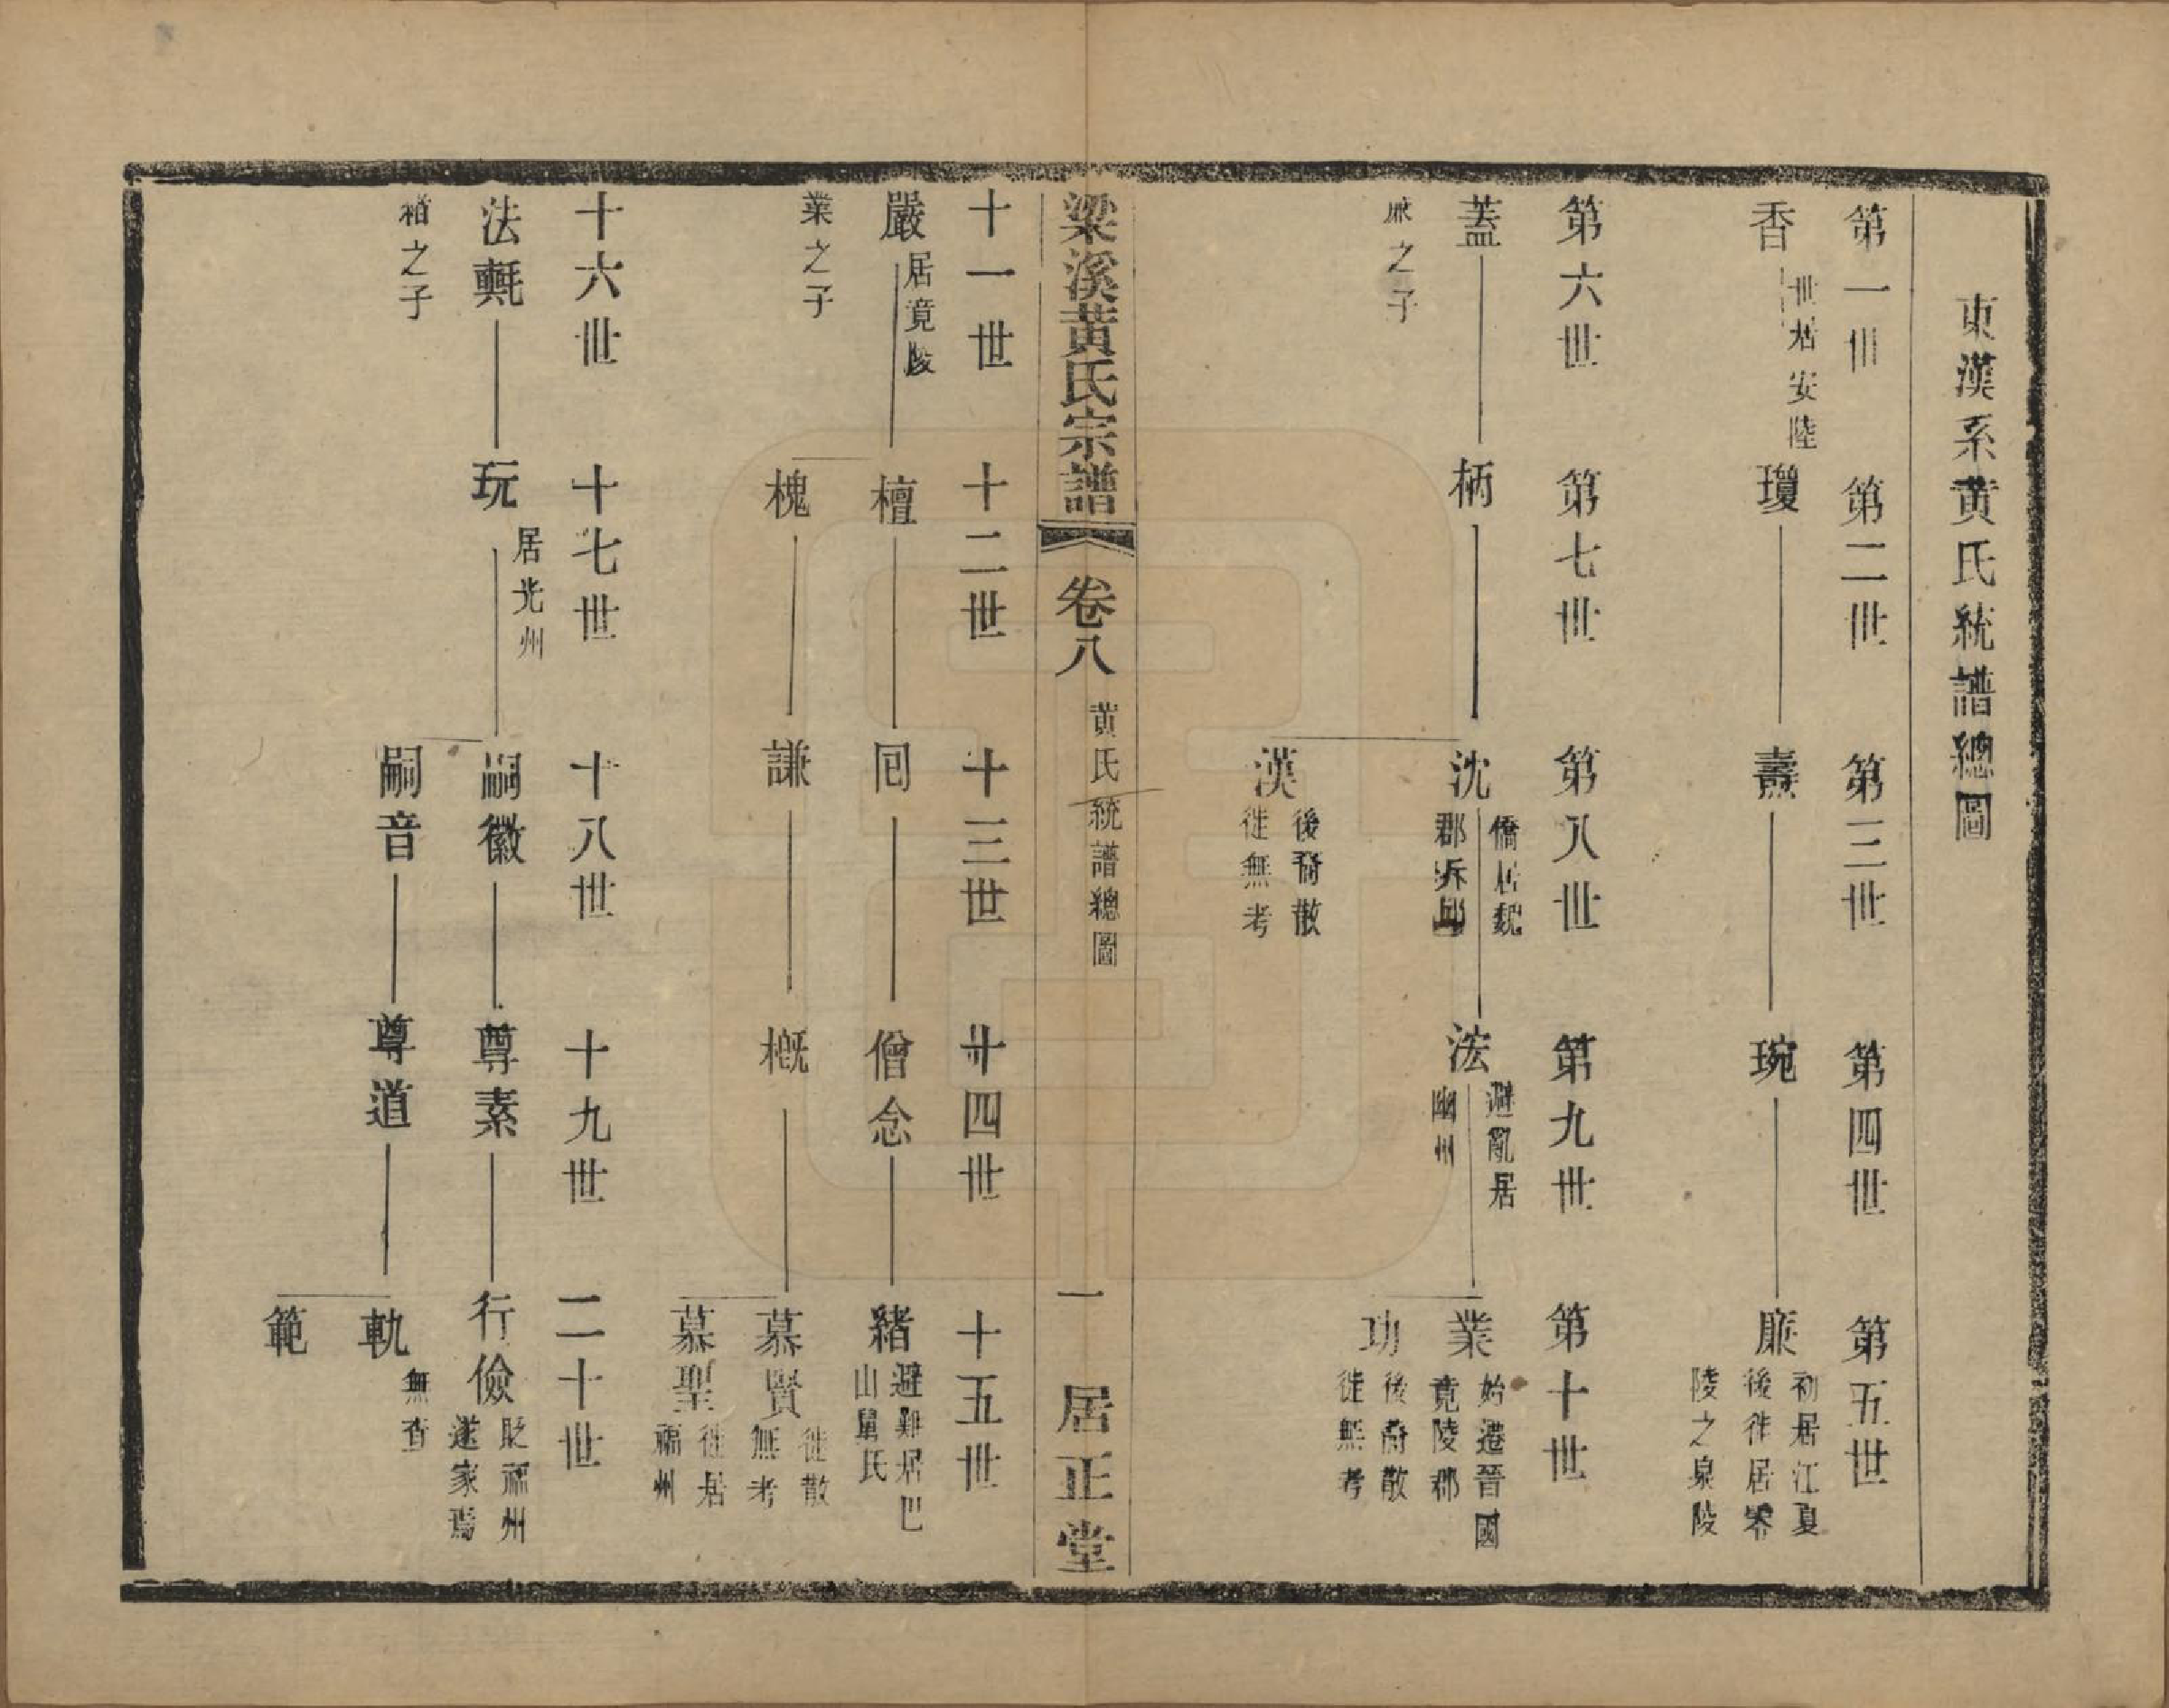 東漢系黄氏統譜總圖
第一世 第二世 第三世 第四世 第五世
香 世居安陸 瓊 燾 琬 廉 初居江夏後徃居零陵之泉陵
第六世 第七世 第八世 第九世 第十世
蓋 柄 沈 僑居魏郡斥邱 浤 避亂居幽州 業 始遷晉國竟陵郡
廉之子
漢 後裔散徙無考
功 後裔散徙無考
梁溪黄氏宗譜 卷八 黄氏統譜總圖 一 居正堂
十一世 十二世 十三世 十四世 十五世
嚴 居竟陵 檀 囘 僧念 緒 避難居巴山舅氏
業之子
槐 謙 概 慕賢 徙散無考
慕聖 徙居福州
十六世 十七世 十八世 十九世 二十世
法𣄃 玩 居光州 嗣徽 尊素 行儉 貶福州遂家焉
緒之子
嗣音 尊道 軌 無查
範